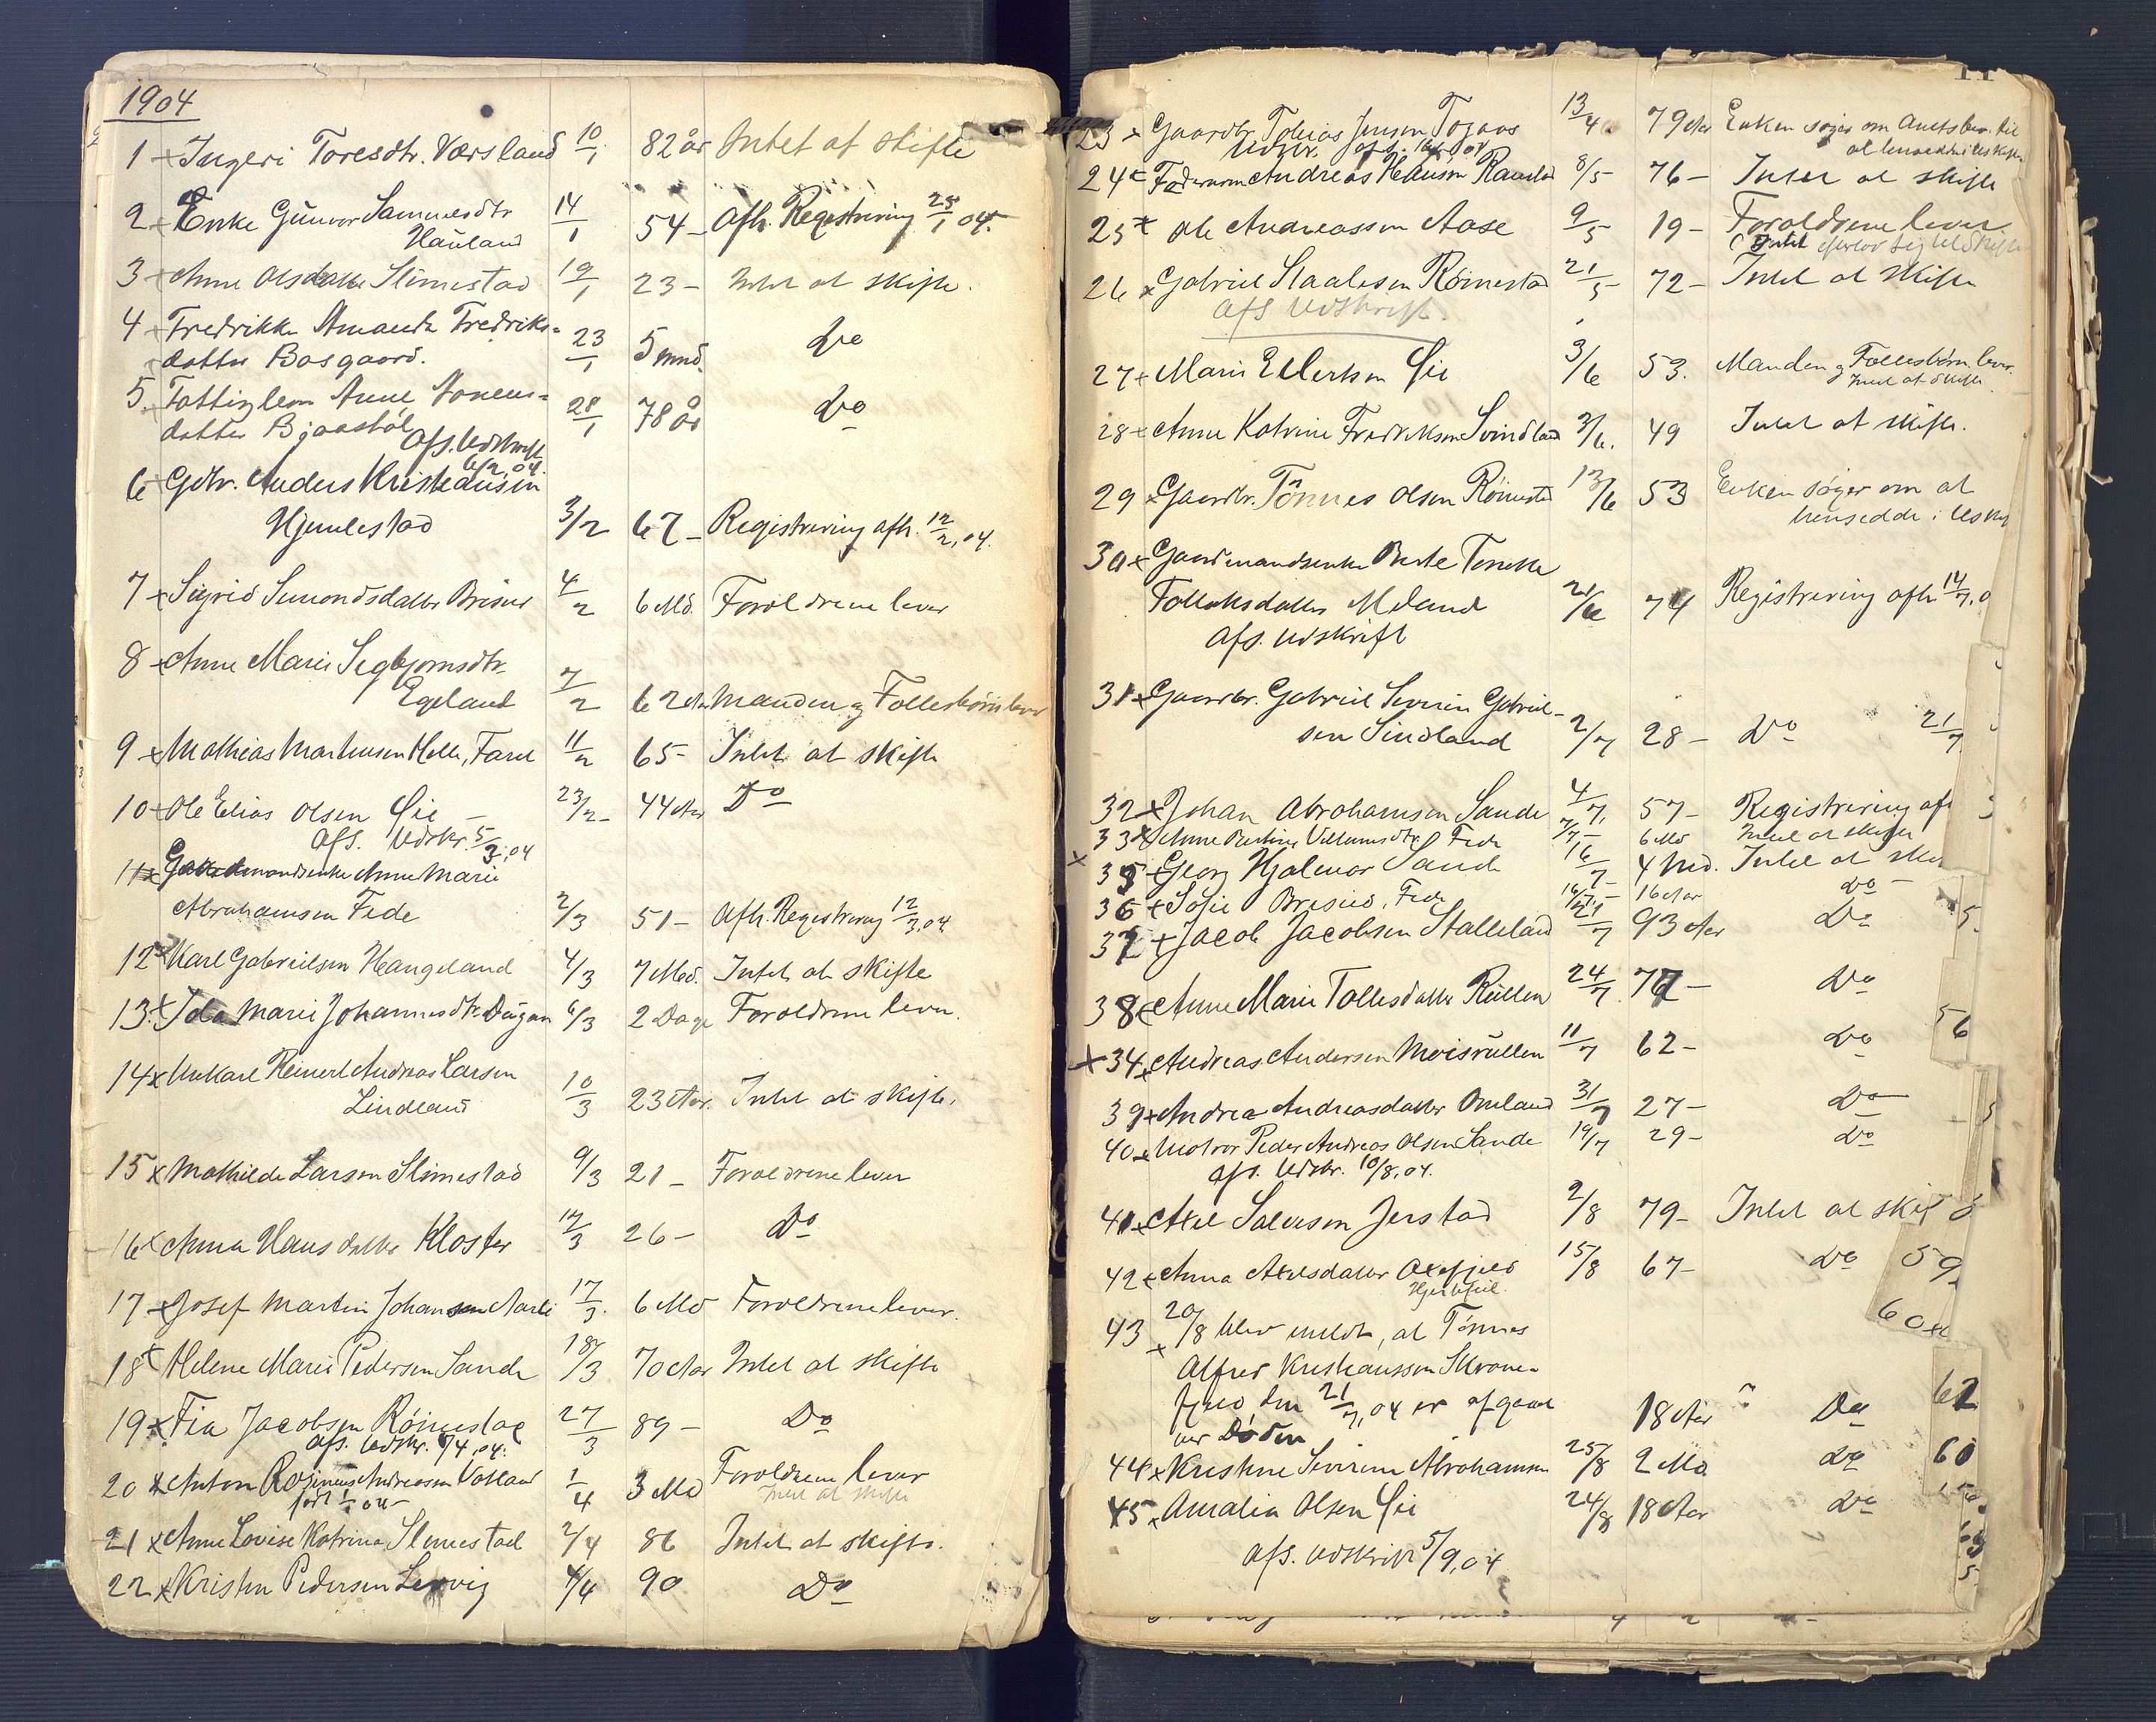 1904
1 x Ingeri Toresdtr. Værsland 10/1 82 år Intet at skifte
2 x Enke Gunvor Samuelsdtr 14/1 54 - Afh. Registrering 25/1 04.
Hauland
3 x Anne Olsdatter Slimestad 19/1 23 - Intet at skifte.
4 x Fredrikke Amanda Fredriks-
datter Bosgaard. 23/1 5 mnd. Do
5. Fattiglem Anne
datter 28/1 78 år Do
Afs. Udskrift
6/2 04.
6 x Gdbr. Anders Kristiansen
Hjemlestad 3/2 67 - Registrering afh. 12/2, 04.
7 x Sigrid Simondsdatter Briseid 4/2 6 Md. Foroldrene lever
8 x Anne Marie Segbjornsdtr.
Egeland 7/2 62 Aar Manden og Follesbørn lever
9 x Mathias Martinsen Helle, 11/2 65 - Intet at skifte
10 x Ole Elias Olsen Øie - 23/2 44 Aar Do
Afs. Udskr. 5/3, 04
11 x Gaardmandsenke Anne Marie
Abrahamsen Fede 2/3 51 - Afh. Registrering 12/3, 04
12 x Karl Gabrielsen Haugeland 4/3 7 Md. Intet at skifte
13. x Ida Marie Johannesdtr 6/3 2 Dage Foroldrene lever.
14 x Ukarl Reinert Andreas Larsen
Lindland 10/3 23 Aar. Intet at skifte.
15 x Mathilde Larsen Slimestad 9/3 21 - Foroldrene lever
16 x Anna Hansdatter Kloster 12/3 26 - Do
17 x Josef Martin Johansen 17/3. 6 Md Foroldrene lever.
18 x Helene Marie Pedersen Sande 18/3 70 Aar Intet at skifte
19 x Fia Jacobsen Röinestad 27/3 89 - Do
afs. Udskr. 9/4, 04.
20 x Anton Andreassen 1/4 3 Md Foroldrene lever
Intet at skifte
21 x Anne Lovise Katrina Slimestad 2/4 86 Intet at skifte.
22 x Kristen Pedersen Lervig 4/4 90 Do
23 x Gaardbr. Tobias Jensen 13/4. 79 Aar Enken søger om Amtsbev. til
Udskr. afs. at hensidde i Uskifte
24 x Andreas Hansen 8/5 76 - Intet at skifte
25 x Ole Andreassen Aase 9/5 19 - Foroldrene lever.
Intet efterlod sig til skifte
26 x Gabriel Staalesen Röinestad 21/5 72 - Intet at skifte
afs Udskrift.
27 x Marie Ellertsen Øie 3/6 53. Manden og Follesbørn lever.
Intet at skifte.
28 x Anne Katrine Fredriksen Svindland 3/6. 49 Intet at skifte.
29 x Gaardbr. Tönnes Olsen Röinestad 13/6 53 Enken søger om at
hensidde i Uskift
30 x Gaardmandsenke Berte Tomine
Tollaksdatter Meland 21/6 74 Registrering afh. 14/7, 0
afs. Udskrift
31 x Gaardbr. Gabriel Severin Gabriel-
sen Sindland 2/7 28 - Do 21/7
32 x Johan Abrahamsen Sande 4/7, 57 - Registrering af
33 x Anne Villumsdtr. Fede 7/7 - 6 Md Intet at skifte
x 35 x Georg Hjalmar Sande 16/7 4 Md. Intet at ski
36 x Sofie Briseid, Fede 16/7 - 16 Aar Do -
37 x Jacob Jacobsen Stalleland 21/7 93 Aar Do 5.
38 x Anne Marie Tollesdatter Rullen 24/7. 77 - Do
x 34 x Andreas Andersen Moisrullen 11/7 62 - Do 56
39 x Andrea Andreasdatter Omland 31/7 27 - Do
40 x Motror Peder Andreas Olsen Sande 19/7 29 - Do
afs. Udskr. 10/8, 04.
41 x Axel Salvesen Jerstad 2/8 79 - Intet at skif
42 x Anna Axelsdatter Oxefjeld 15/8 67 - Do 59
60
43 x 20/8 blev meldt, at Tönnes
Alfred Kristiansen Skrane-
fjeld den 21/7, 04 er afgaaet
ver Døden 18 Aar Do 62
44 x Kristine Severine Abrahamsen 25/8 2 Md Do 60
45 x Amalia Olsen Øie 24/8 18 Aar Do
afs. Udskrift 5/9, 04